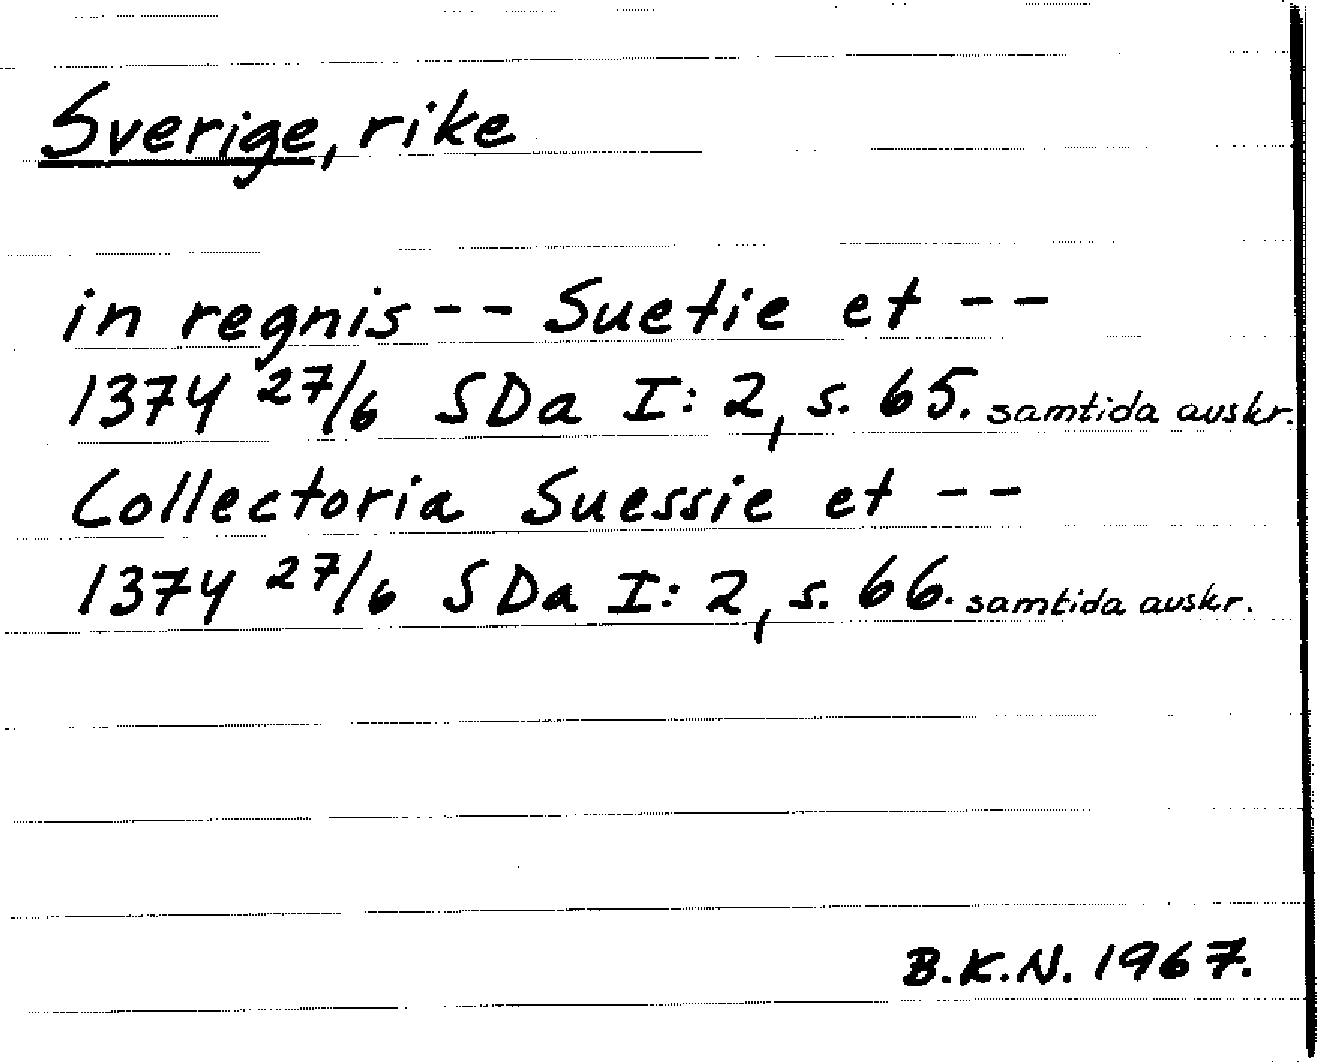 Sverige, rike
in regnis -- Suetie et --
1374 27/6 SDa I: 2, s. 65. samtida avskr.
Collectoria Suessie et --
1374 27/6 SDa I: 2, s. 66. samtida avskr.
B.K.N. 1967.